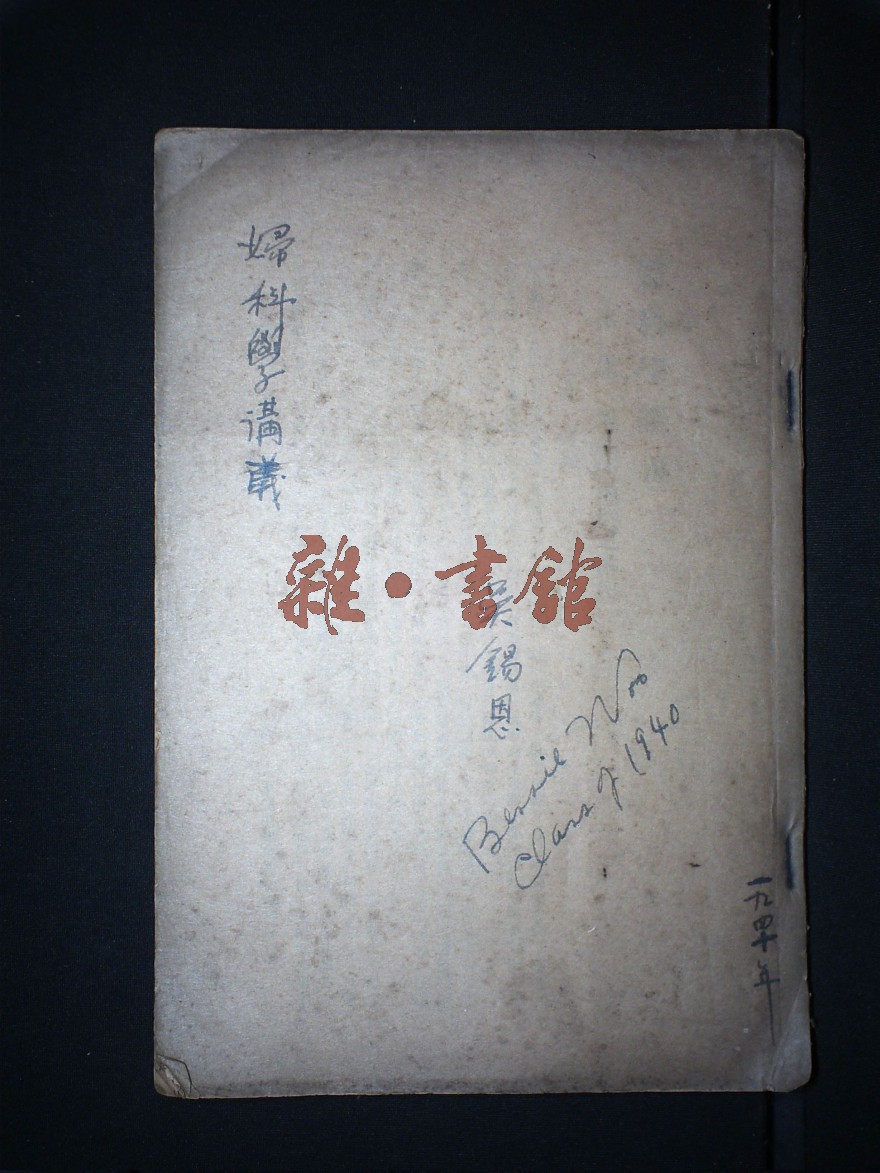 婦科學講義
雜·書館
吳錫恩
Bessie Woo
Class of 1940
一九四十年